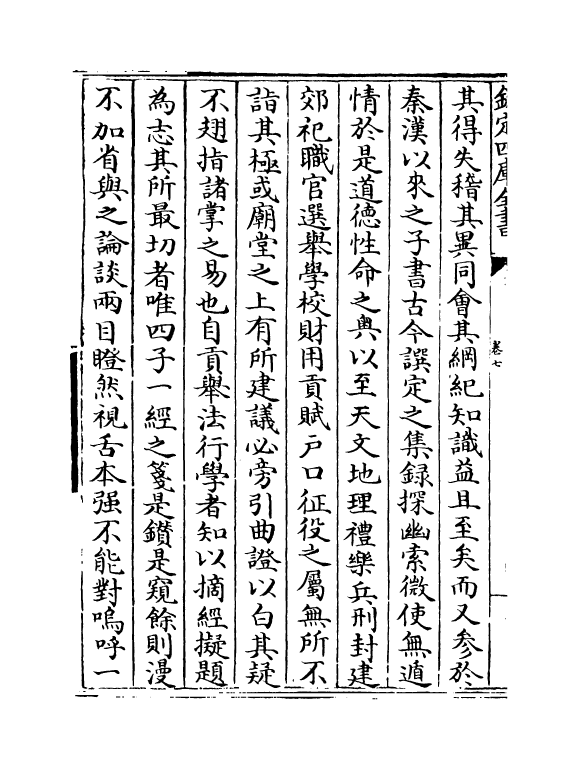 欽定四庫全書
卷七
其得失稽其異同會其綱紀知識益且至矣而又參於
秦漢以來之子書古今譔定之集録探幽索微使無遁
情於是道德性命之奥以至天文地理禮樂兵刑封建
郊祀職官選舉學校財用貢賦戸口征役之屬無所不
詣其極或廟堂之上有所建議必旁引曲證以白其疑
不翅指諸掌之易也自貢舉法行學者知以摘經擬題
為志其所最切者唯四子一經之箋是鑚是窺餘則漫
不加省與之論談兩目瞪然視舌本强不能對嗚呼一